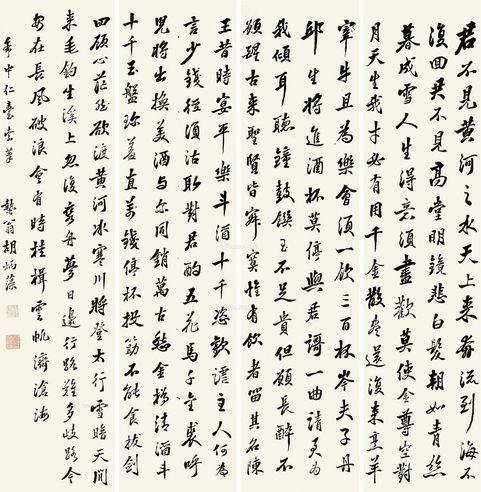 君不見黃河之水天上來奔流到海不
復回君不見高堂明鏡悲白髮朝如青絲
暮成雪人生得意須盡歡莫使金尊空對
月天生我才必有用千金散盡還復來烹羊
宰牛且為樂會須一飲三百杯岑夫子丹
邱生將進酒杯莫停與君謌一曲請君為
我傾耳聽鐘鼓饌玉不足貴但願長醉不
願醒古來聖賢皆寂寞惟有飲者留其名陳
王昔時宴平樂斗酒十千恣歡謔主人何為
言少錢徑須沽取對君酌五花馬千金裘呼
兒將出換美酒与尔同銷萬古愁金樽清酒斗
十千玉盤珍羞直萬錢停杯投筯不能食拔劍
四顧心茫然欲渡黃河冰塞川將登太行雪暗天閒
來垂釣坐溪上忽復乘舟夢日邊行路難多歧路今
安在長風破浪會有時桂楫雲帆濟滄海
中仁臺 翁胡炳藻